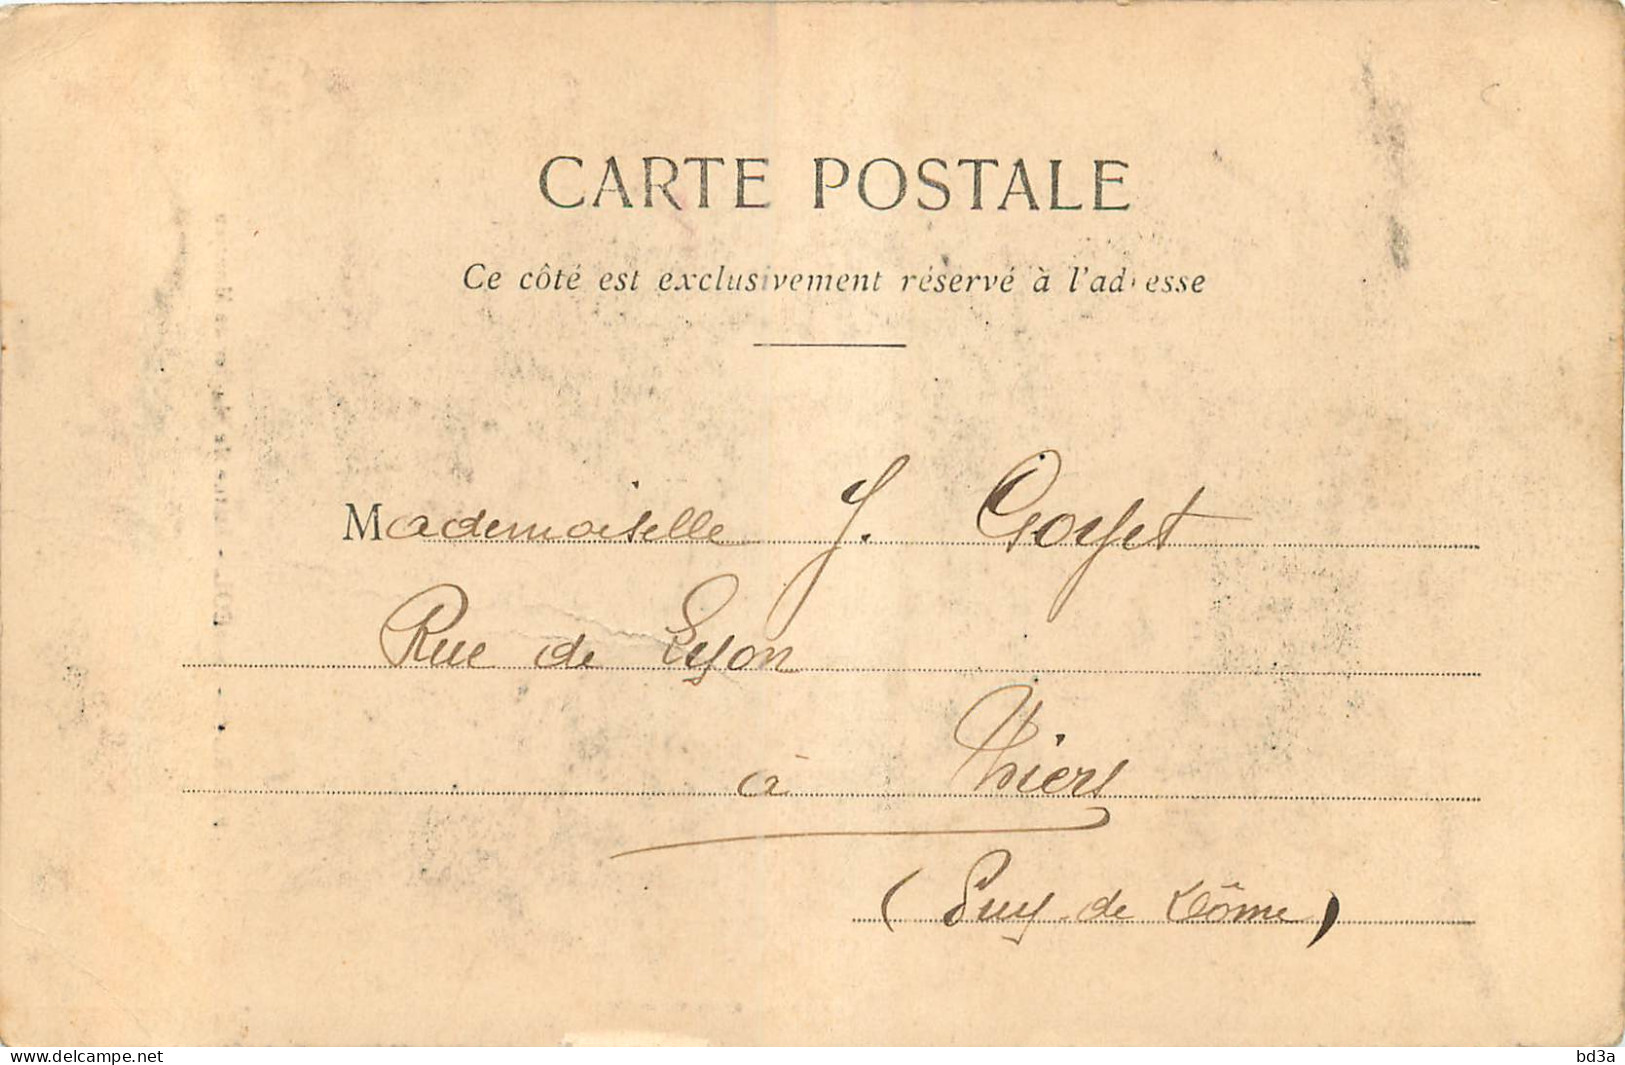 CARTE POSTALE
Ce côté est exclusivement réservé à l'adresse
Mademoiselle J. Goyet
Rue de Lyon
à Thiers
(Puy-de Dôme)
www.delcampe.net
bd3a